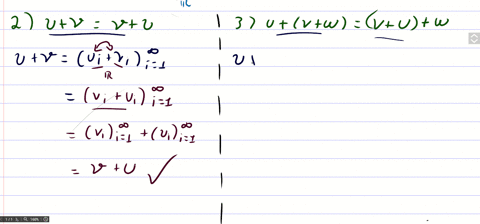 2) u+v = v+u
u+v = (u_i+v_i)_{i=1}^∞
ℝ
= (v_i + u_i)_{i=1}^∞
= (v_i)_{i=1}^∞ + (u_i)_{i=1}^∞
= v+u ✓
3) u+(v+w) = (v+u)+w
u